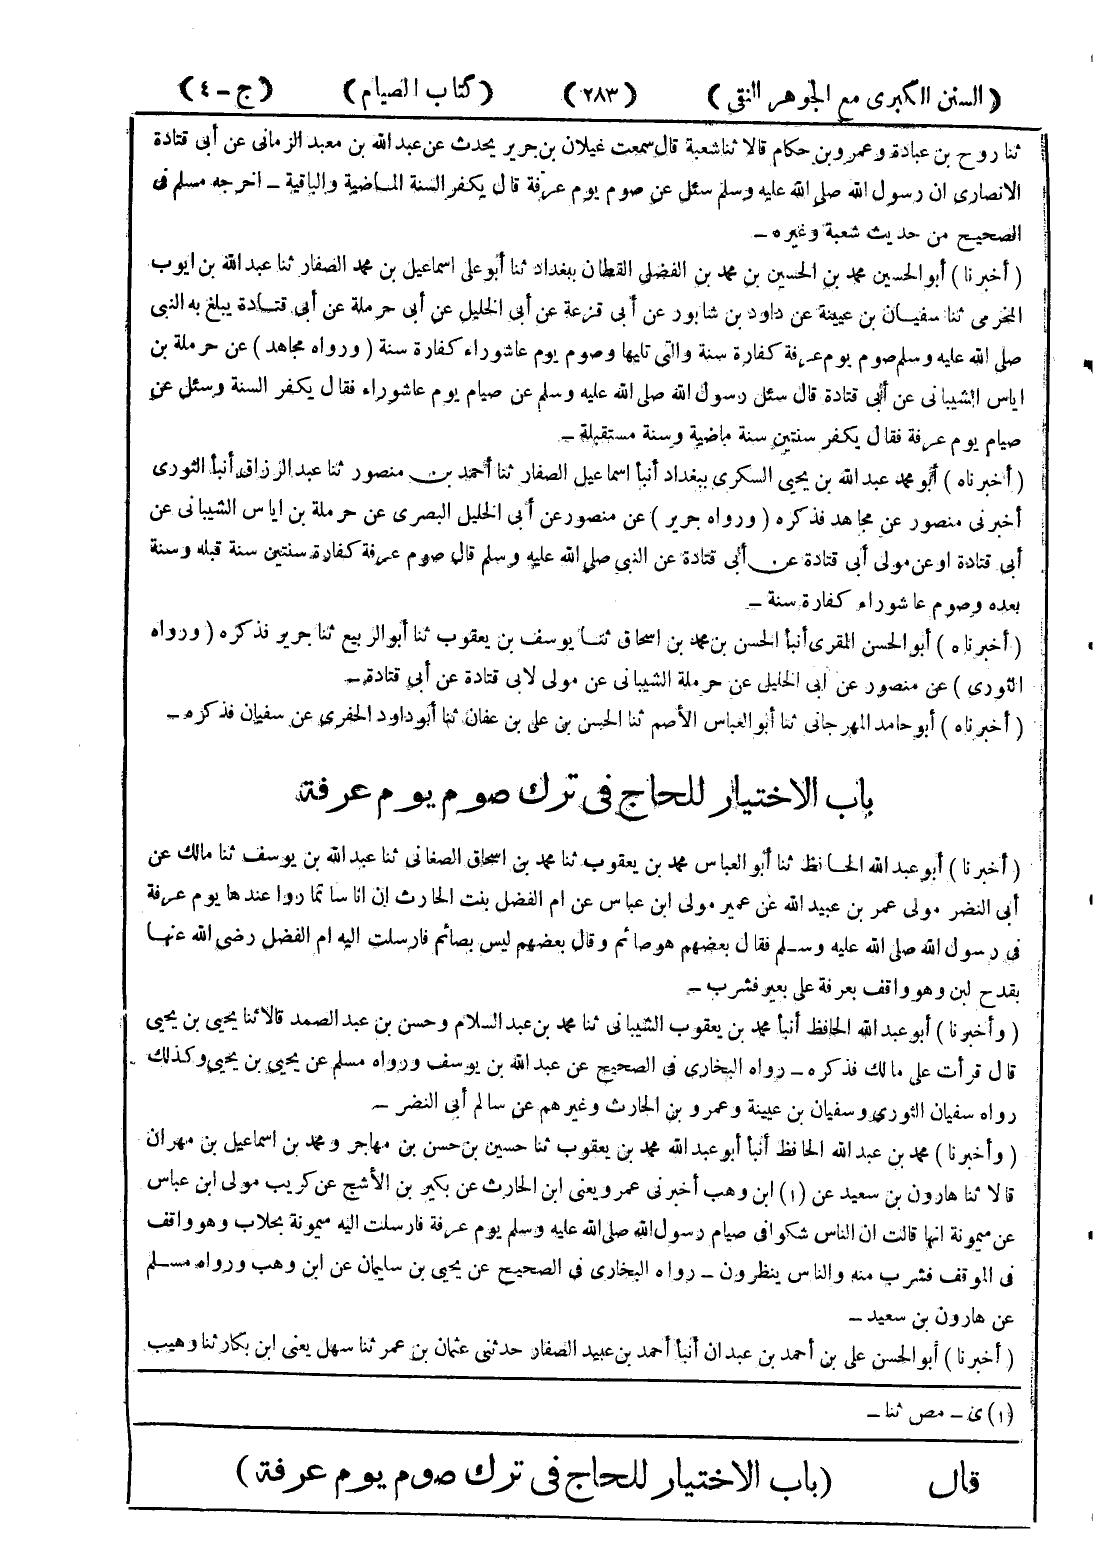 ( السنن الكبرى مع الجوهر النقى ) ( ٢٨٣ ) ( كتاب الصيام ) ( ج - ٤ )
ثنا روح بن عبادة وعمرو بن حكام قالا ثنا شعبة قال سمعت غيلان بن جرير يحدث عن عبد الله بن معبد الزمانى عن أبى قتادة
الانصارى ان رسول الله صلى الله عليه وسلم سئل عن صوم يوم عرفة قال يكفر السنة الماضية والباقية - اخرجه مسلم فى
الصحيح من حديث شعبة وغيره -
( أخبرنا ) أبو الحسين محمد بن الحسين بن محمد بن الفضل القطان ببغداد ثنا أبو على اسماعيل بن محمد الصفار ثنا عبد الله بن ايوب
المخرمى ثنا سفيان بن عيينة عن داود بن شابور عن أبى قزعة عن أبى الخليل عن أبى حرملة عن أبى قتادة يبلغ به النبى
صلى الله عليه وسلم صوم يوم عرفة كفارة سنة والتى تليها وصوم يوم عاشوراء كفارة سنة ( ورواه مجاهد ) عن حرملة بن
اياس الشيبانى عن أبى قتادة قال سئل رسول الله صلى الله عليه وسلم عن صيام يوم عاشوراء فقال يكفر السنة وسئل عن
صيام يوم عرفة فقال يكفر سنتين سنة ماضية وسنة مستقبلة -
( أخبرناه ) أبو محمد عبد الله بن يحيى السكرى ببغداد أنبأ اسماعيل الصفار ثنا أحمد بن منصور ثنا عبد الرزاق أنبأ الثورى
أخبرنى منصور عن مجاهد فذكره ( ورواه جرير ) عن منصور عن أبى الخليل البصرى عن حرملة بن اياس الشيبانى عن
أبى قتادة او عن مولى أبى قتادة عن أبى قتادة عن النبى صلى الله عليه وسلم قال صوم عرفة كفارة سنتين سنة قبله وسنة
بعده وصوم عاشوراء كفارة سنة -
( أخبرناه ) أبو الحسن المقرى أنبأ الحسن بن محمد بن اسحاق ثنا يوسف بن يعقوب ثنا أبو الربيع ثنا جرير فذكره ( ورواه
الثورى ) عن منصور عن ابى الخليل عن حرملة الشيبانى عن مولى لابى قتادة عن أبى قتادة -
( أخبرناه ) أبو حامد المهرجانى ثنا أبو العباس الأصم ثنا الحسن بن على بن عفان ثنا أبو داود الحفرى عن سفيان فذكره -
باب الاختيار للحاج فى ترك صوم يوم عرفة
( أخبرنا ) أبو عبد الله الحافظ ثنا أبو العباس محمد بن يعقوب ثنا محمد بن اسحاق الصغانى ثنا عبد الله بن يوسف ثنا مالك عن
أبى النضر مولى عمر بن عبيد الله عن عمير مولى ابن عباس عن ام الفضل بنت الحارث ان اناسا تماروا عندها يوم عرفة
فى رسول الله صلى الله عليه وسلم فقال بعضهم هو صائم وقال بعضهم ليس بصائم فارسلت اليه ام الفضل رضى الله عنها
بقدح لبن وهو واقف بعرفة على بعير فشرب -
( وأخبرنا ) أبو عبد الله الحافظ أنبأ محمد بن يعقوب الشيبانى ثنا محمد بن عبد السلام وحسن بن عبد الصمد قالا ثنا يحيى بن يحيى
قال قرأت على مالك فذكره - رواه البخارى فى الصحيح عن عبد الله بن يوسف ورواه مسلم عن يحيى بن يحيى وكذلك
رواه سفيان الثورى وسفيان بن عيينة وعمرو بن الحارث وغيرهم عن سالم أبى النضر -
( وأخبرنا ) محمد بن عبد الله الحافظ أنبأ أبو عبد الله محمد بن يعقوب ثنا حسين بن حسن بن مهاجر ومحمد بن اسماعيل بن مهران
قالا ثنا هارون بن سعيد عن (١) ابن وهب أخبرنى عمرو يعنى ابن الحارث عن بكير بن الأشج عن كريب مولى ابن عباس
عن ميمونة انها قالت ان الناس شكوا فى صيام رسول الله صلى الله عليه وسلم يوم عرفة فارسلت اليه ميمونة بحلاب وهو واقف
فى الموقف فشرب منه والناس ينظرون - رواه البخارى فى الصحيح عن يحيى بن سليمان عن ابن وهب ورواه مسلم
عن هارون بن سعيد -
( أخبرنا ) أبو الحسن على بن أحمد بن عبدان أنبأ أحمد بن عبيد الصفار حدثنى عثمان بن عمر ثنا سهل يعنى ابن بكار ثنا وهيب
(١) ى - مص ثنا -
قال ( باب الاختيار للحاج فى ترك صوم يوم عرفة )